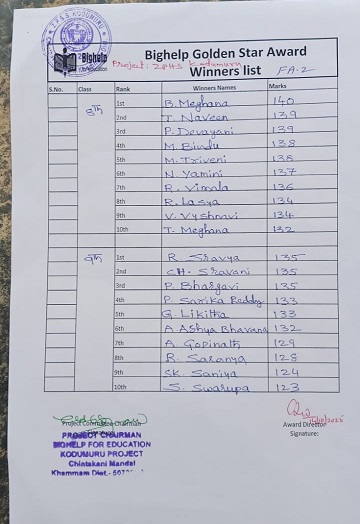 Z.P.S.S KODUMURU
Bighelp
for education
Bighelp Golden Star Award
Project: ZPHS Kodumuru
Winners list FA-2
S.No. Class Rank Winners Names Marks
8th 1st B. Meghana 140
2nd T. Naveen 139
3rd P. Devayani 139
4th M. Bindu 138
5th M. Triveni 138
6th N. Yamini 137
7th R. Vimala 136
8th R. Lasya 134
9th V. Vyshnavi 134
10th T. Meghana 132
9th 1st R. Sravya 135
2nd CH. Sravani 135
3rd P. Bhargavi 135
4th P. Sarika Reddy 133
5th G. Likitha 133
6th A Ashya Bhavana 132
7th A. Gopinath 129
8th R. Saranya 128
9th SK. Saniya 124
10th S. Swarupa 123
Project Committee Chairman
PROJECT CHAIRMAN
BIGHELP FOR EDUCATION
KODUMURU PROJECT
Chintakani Mandal
Khammam Dist.-
Award Director
Signature: